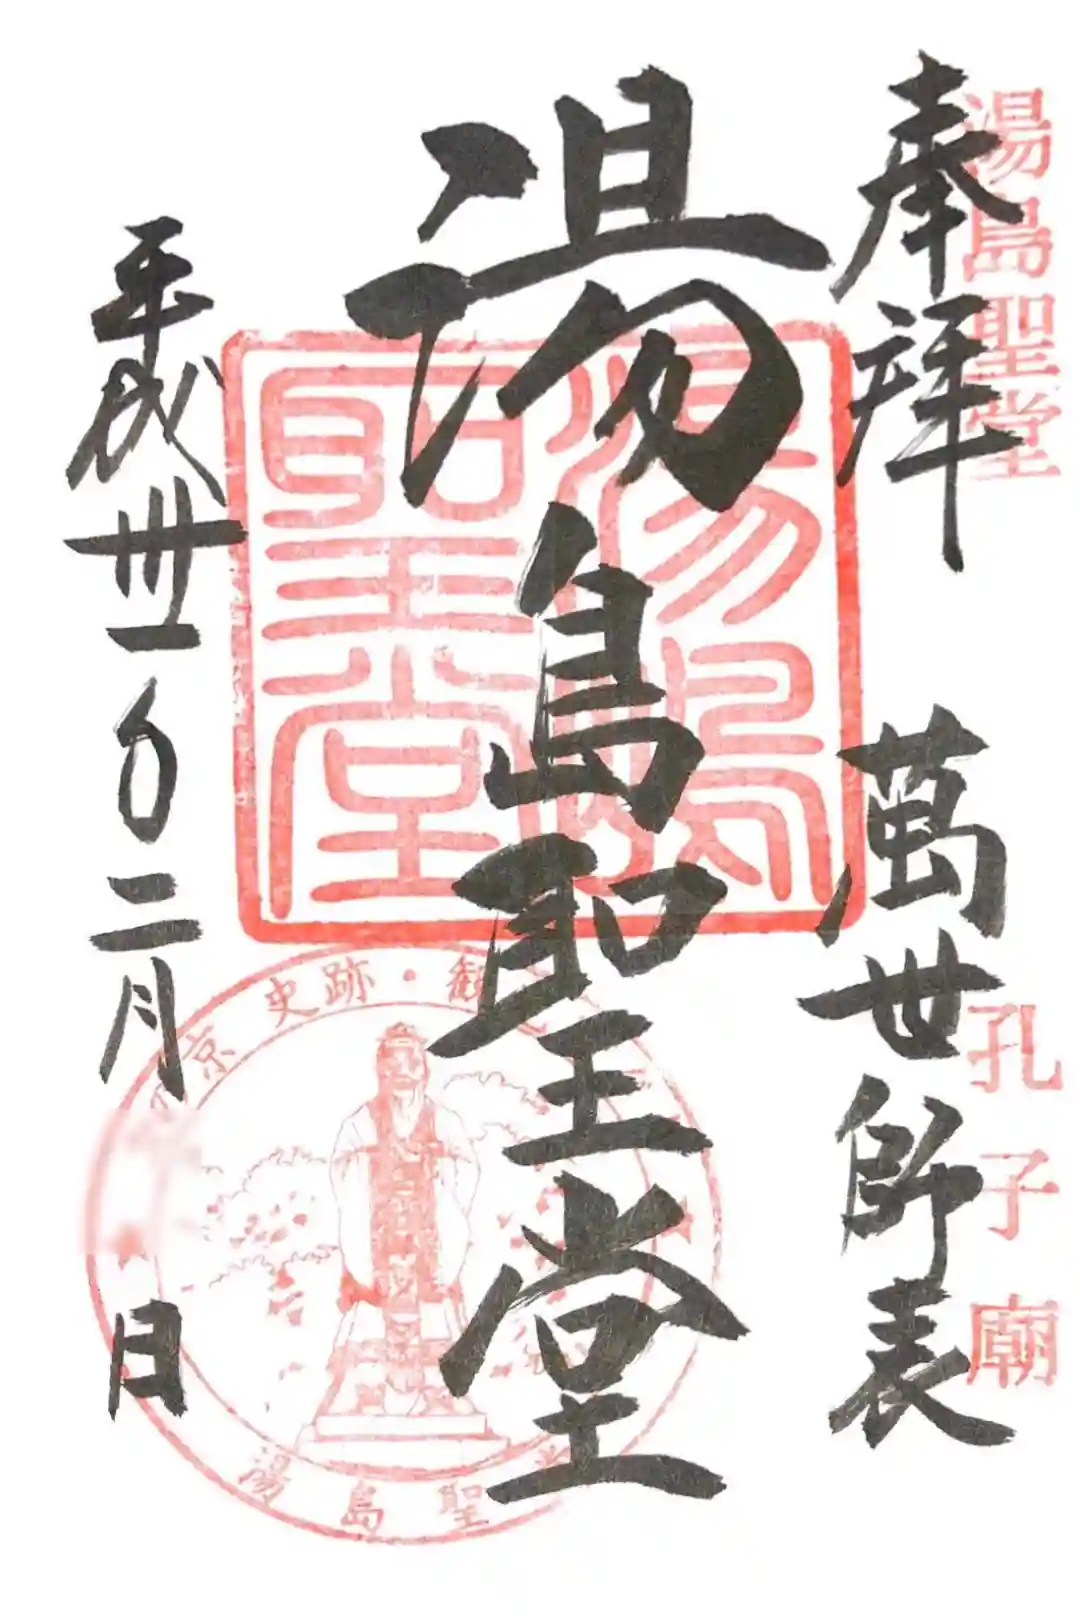 湯島聖堂 孔子廟
奉拝 萬世師表
湯島聖堂
湯島聖堂
平成卅一年二月 日
京 史跡・観
湯島聖堂